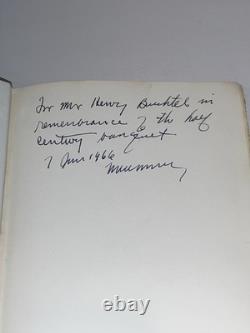 For Mr Henry Buchtel in
remembrance of the half
century banquet
7 Jun 1966
ebay